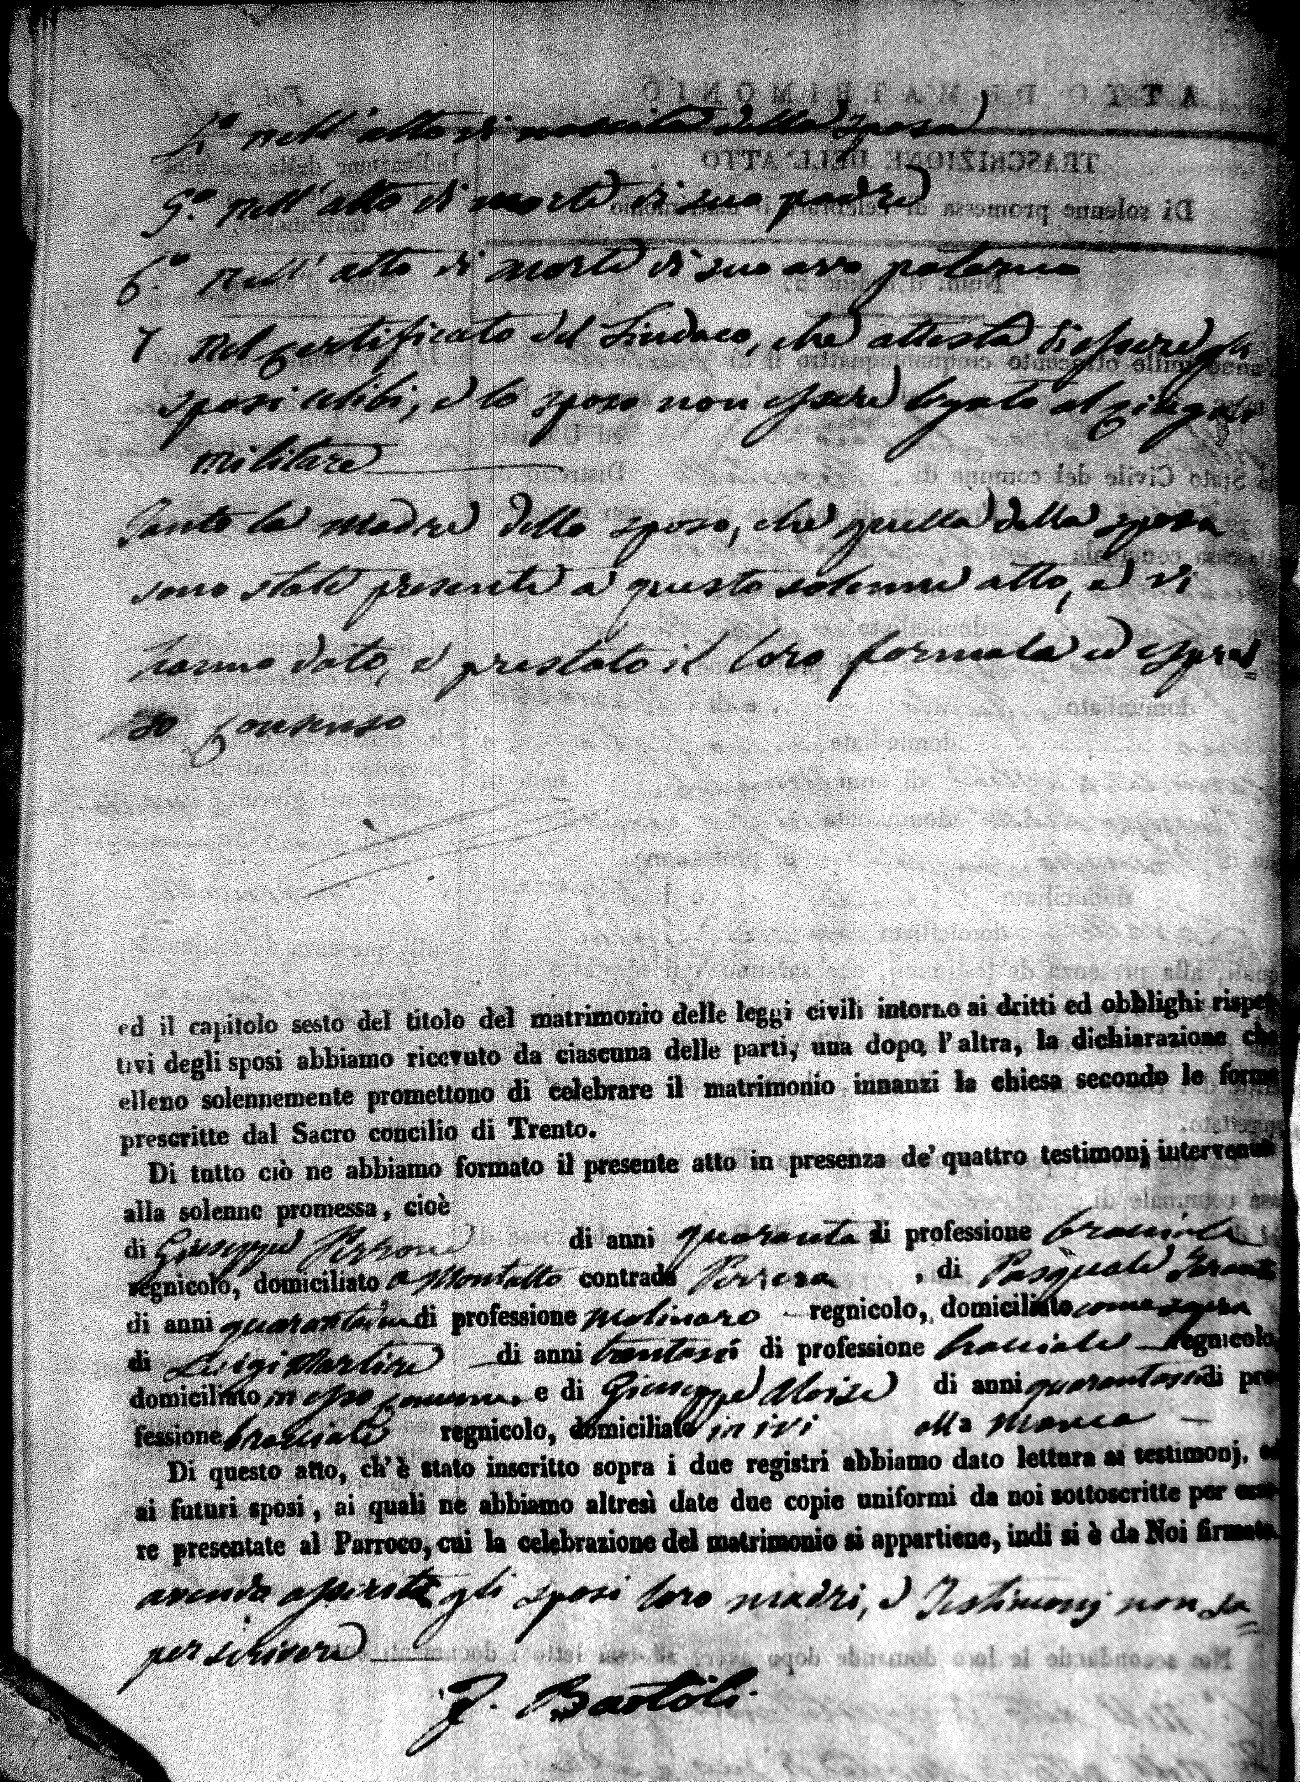 4.º nell'atto di nascita della sposa
5.º nell'atto di morte di suo padre
6.º nell'atto di morte di suo avo paterno
7 nel certificato del Sindaco, che attesta di essere gli
sposi celibi, e lo sposo non essere legato al cingolo
militare
Tanto la madre dello sposo, che quella della sposa
sono state presenti a questo solenne atto, e vi
hanno dato, e prestato il loro formale ed espres=
so consenso
ed il capitolo sesto del titolo del matrimonio delle leggi civili intorno ai dritti ed obblighi rispet-
tivi degli sposi abbiamo ricevuto da ciascuna delle parti, una dopo l'altra, la dichiarazione che
elleno solennemente promettono di celebrare il matrimonio innanzi la chiesa secondo le forme
prescritte dal Sacro concilio di Trento.
Di tutto ciò ne abbiamo formato il presente atto in presenza de' quattro testimonj intervenuti
alla solenne promessa, cioè
di Giuseppe di anni quaranta di professione bracciale
regnicolo, domiciliato a Montalto contrada , di Pasquale
di anni di professione molinaro regnicolo, domiciliato come sopra
di Luigi Martire di anni trentasei di professione bracciale regnicolo
domiciliato in esso comune e di Giuseppe Aloise di anni quarantasei di pro-
fessione bracciale regnicolo, domiciliato in ivi alla Manca
Di questo atto, ch'è stato inscritto sopra i due registri abbiamo dato lettura ai testimonj, ed
ai futuri sposi, ai quali ne abbiamo altresì date due copie uniformi da noi sottoscritte per esse-
re presentate al Parroco, cui la celebrazione del matrimonio si appartiene, indi si è da Noi firmato.
avendo asserito gli sposi loro madri, e Testimonj non sa=
per scrivere
F. Bartoli